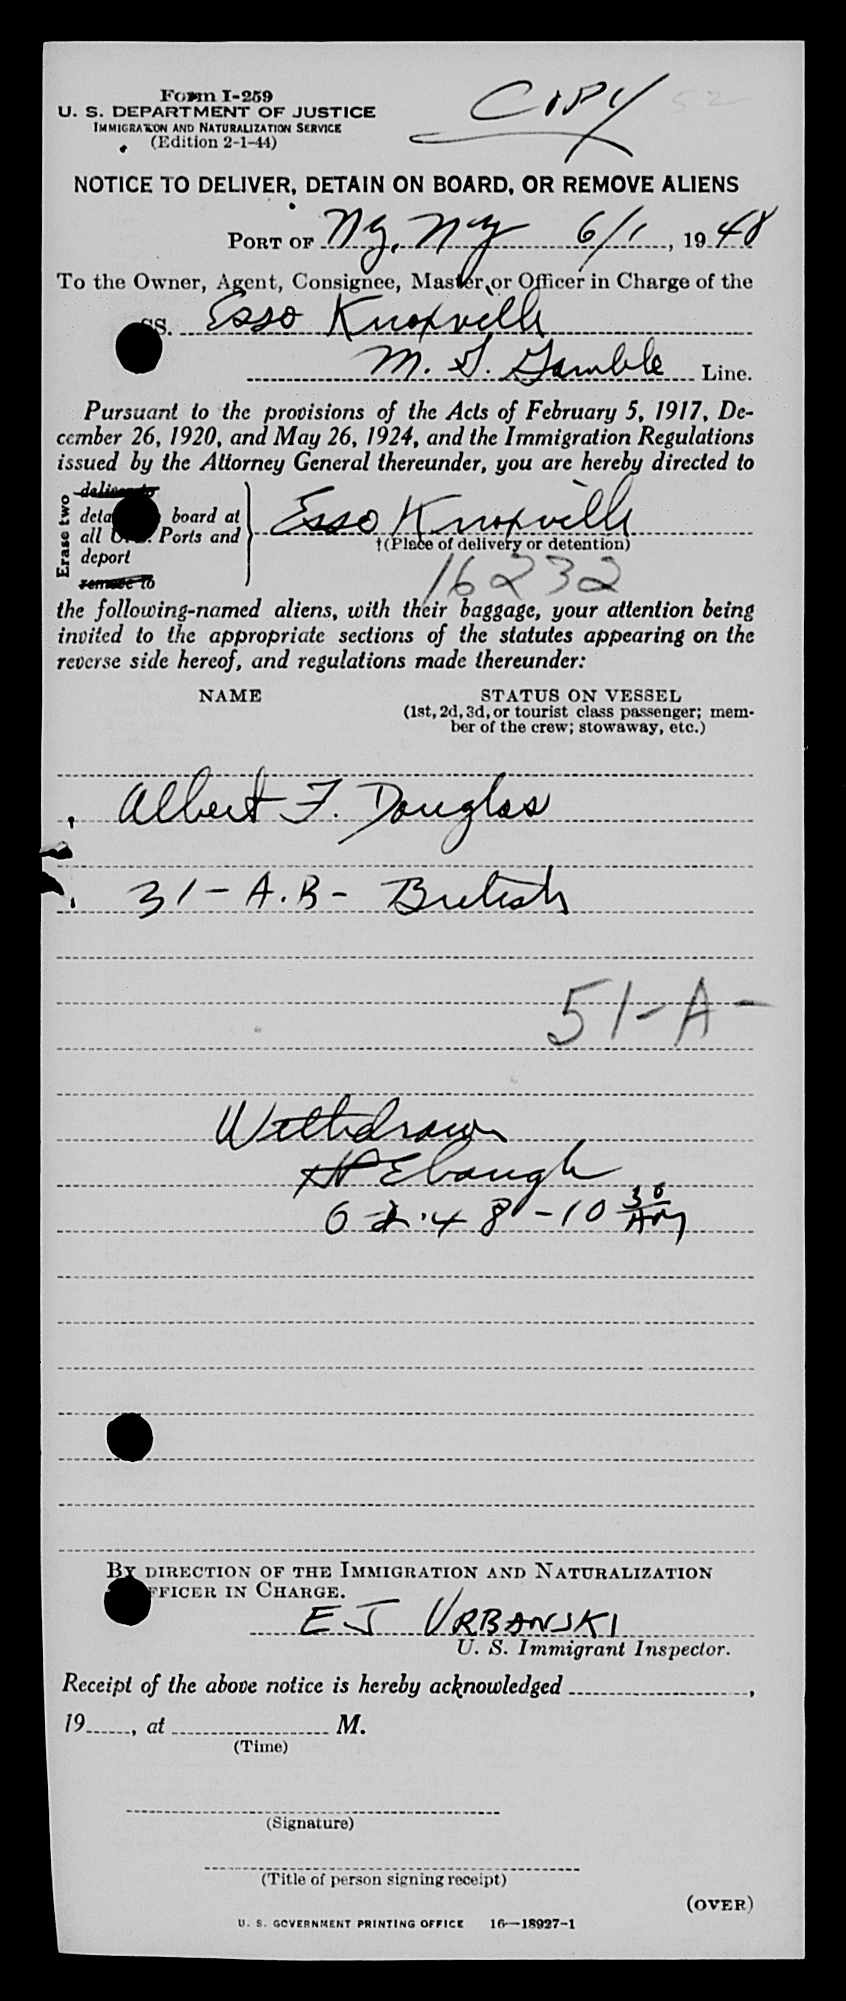 Form I-259
COPY 52
U. S. DEPARTMENT OF JUSTICE
IMMIGRATION AND NATURALIZATION SERVICE
(Edition 2-1-44)
NOTICE TO DELIVER, DETAIN ON BOARD, OR REMOVE ALIENS
PORT OF NY, NY 6/1, 1948
To the Owner, Agent, Consignee, Master, or Officer in Charge of the
SS. Esso Knoxville
M. S. Gamble Line.
Pursuant to the provisions of the Acts of February 5, 1917, De-
cember 26, 1920, and May 26, 1924, and the Immigration Regulations
issued by the Attorney General thereunder, you are hereby directed to
Erase two
deliver to
deta board at
all U.S. Ports and
deport
remove to
Esso Knoxville
†(Place of delivery or detention)
16232
the following-named aliens, with their baggage, your attention being
invited to the appropriate sections of the statutes appearing on the
reverse side hereof, and regulations made thereunder:
NAME STATUS ON VESSEL
(1st, 2d, 3d, or tourist class passenger; mem-
ber of the crew; stowaway, etc.)
Albert F. Douglas
31 - A.B - British
51-A-
Withdrawn
HP Ebaugh
6-2-48-10 30 AM
BY DIRECTION OF THE IMMIGRATION AND NATURALIZATION
OFFICER IN CHARGE.
E J URBANSKI
U. S. Immigrant Inspector.
Receipt of the above notice is hereby acknowledged ,
19 , at M.
(Time)
(Signature)
(Title of person signing receipt)
(OVER)
U. S. GOVERNMENT PRINTING OFFICE 16—18927-1